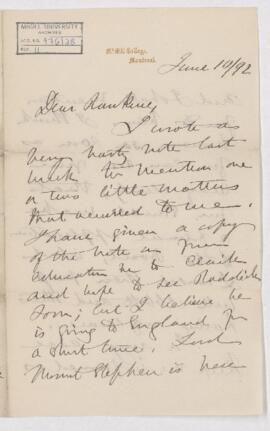 McGILL UNIVERSITY
ARCHIVES
ACC. NO.
REF. 11
McGill College,
Montreal.
June 10/92
Dear Rankine,
I wrote a
very hasty note last
week to mention one
or two little matters
that occurred to me.
I have given a copy
of the note as
education to Clark
and hope to see Roddick
soon; but I believe he
is going to England for
a short time. Lord
Mount Stephen is here